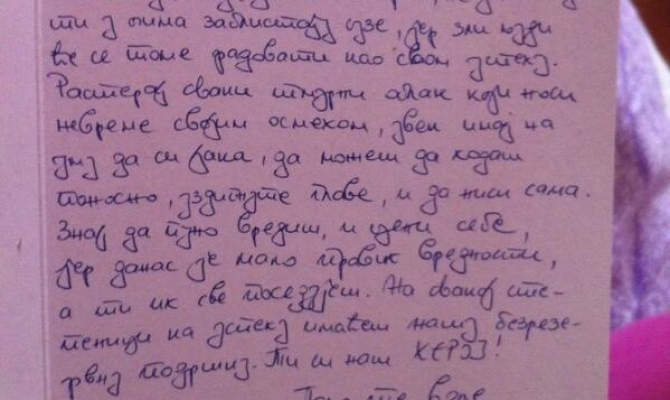 ти у њима заблистају сузе, јер зли људи
ће се томе радовати као свом успеху.
Растерај сваки тмурни облак који носи
невреме својим осмехом, увек имај на
уму да си јака, да можеш да ходаш
поносно, уздигнуте главе, и да ниси сама.
Знај да пуно вредиш, и цени себе,
јер данас је мало правих вредности,
а ти их све поседујеш. На свакој сте-
пеници ка успеху имаћеш нашу безрезе-
рвну подршку. Ти си наш ХЕРОЈ!
те воле